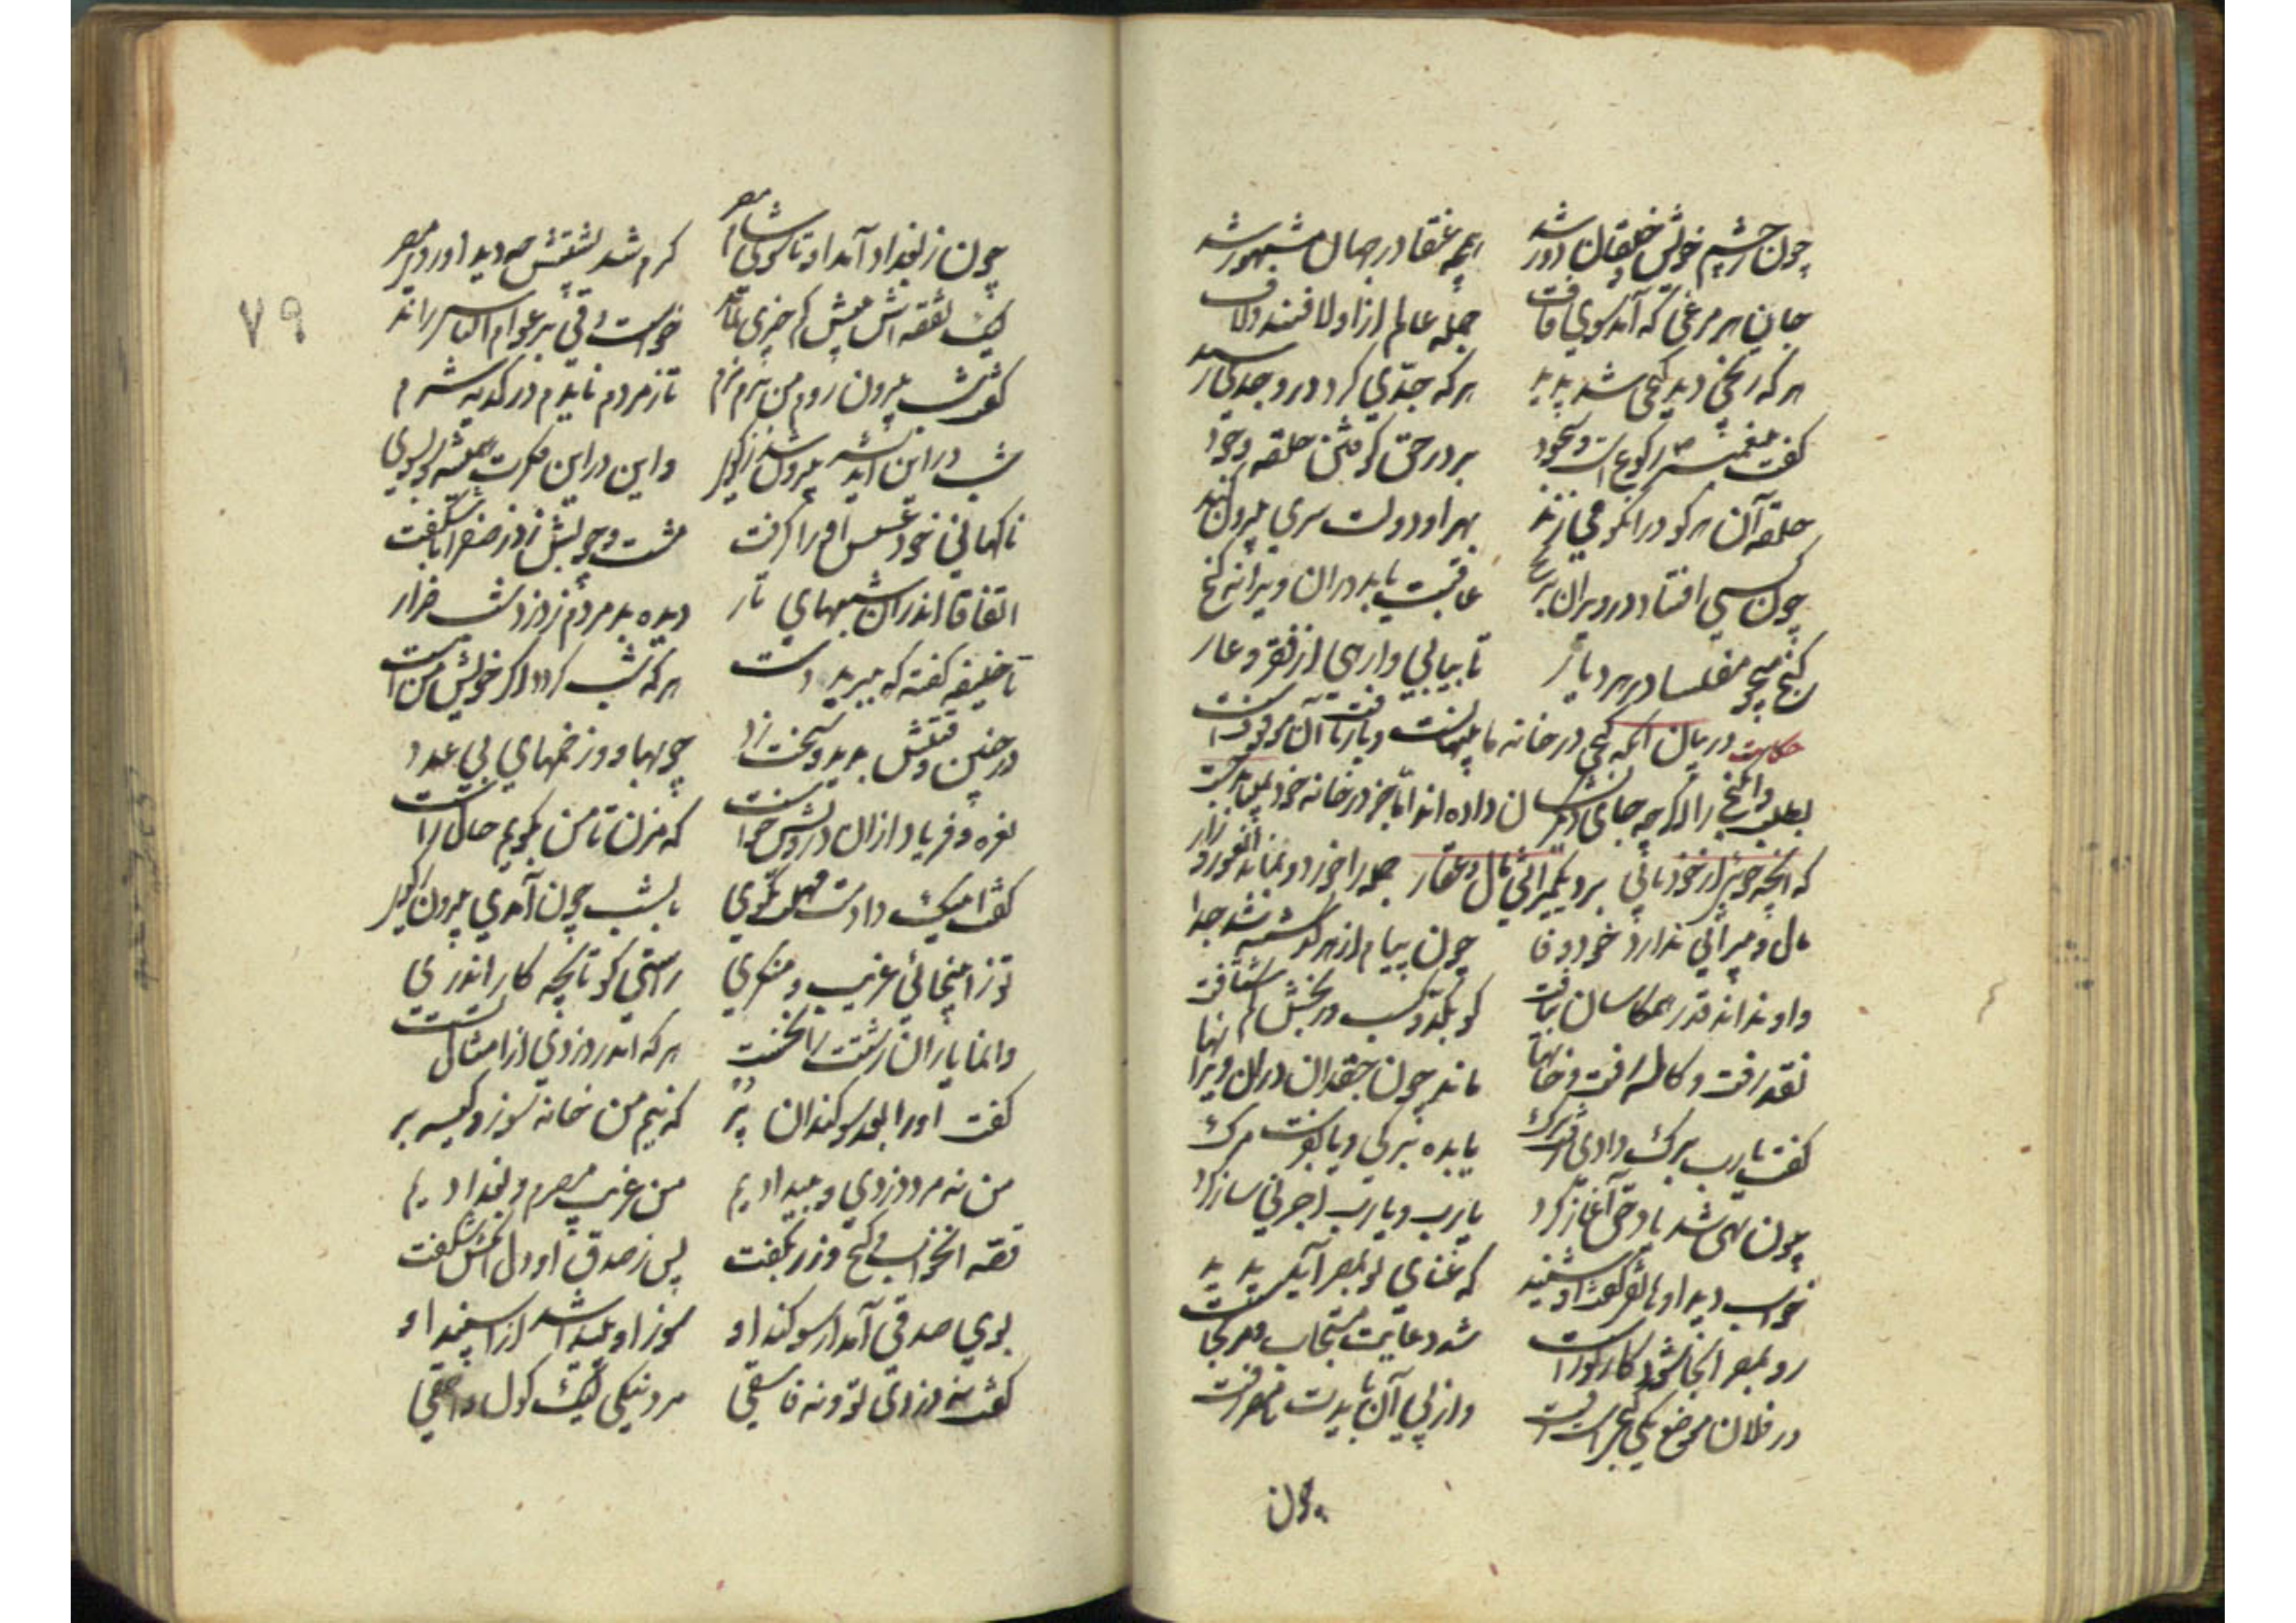 چون ز چشم خویش خلقان دور شد همچو عنقا در جهان مشهور شد
جان هر مرغی که آمد سوی قاف جمله عالم ازو لافند لاف
هر که رنجی دید گنجی شد پدید هر که جدی کرد در وجدی رسید
گفت پیغمبر رکوعست و سجود بر در حق کوفتن حلقه وجود
حلقه آن در هر آنکو می زند بهر او دولت سری بیرون کند
چون کسی افتاد در ویران برنج عاقبت یابد در آن ویرانه گنج
گنج میجو مفلسا در هر دیار تا بیابی وارهی از فقر و عار
حکایت در بیان آنکه گنج در خانه ما پنهانست و یافتن آن موقوفست
بطلب و آن گنج را اگر چه جای دیگر نشان داده اند اما جز در خانه خود نباید جست
که آنچه جوئی از خود یابی بود یک میراثی مال و عقار جمله را خورد و بماند او عور و زار
مال میراثی ندارد خود وفا چون بناکام از گذشته شد جدا
او نداند قدر هم کاسان بیافت کو بکد و کسب و رنجش کم شتافت
نقد رفت و کاله رفت و خانها ماند چون جغدان در آن ویرانها
گفت یارب برگ دادی رفت برگ یا بده برگی و یا بفرست مرگ
چون تهی شد یاد حق آغاز کرد یارب و یارب اجرنی ساز کرد
خواب دید او هاتفی گفت او شنید که غنای تو بمصر آید پدید
رو بمصر آنجا شود کار تو راست شد دعایت مستجاب
در فلان موضع یکی گنجیست زفت در پی آن بایدت تا مصر رفت
چون
۷۹
چون ز بغداد آمد او تا سوی مصر گرم شد پشتش چو دید او روی مصر
لیک نفقه اش بیش و کم چیزی نماند خواست دقی بر عوام الناس راند
گفت شب بیرون روم من نرم نرم تا ز مردم نایدم در کدیه شرم
شب در این اندیشه بیرون شد بکوی و اندر این فکرت همی شد سو بسوی
ناگهانی خود عسس او را گرفت مشت و چوبش زد ز صفرا ناشکفت
اتفاقا اندر آن شبهای تار دیده بد مردم ز دزدان ضرار
تا خلیفه گفته که ببرید دست هر که شب گردد اگر خویش من است
در چنین وقتش بدید و سخت زد چوبها و زخمهای بی عدد
نعره و فریاد از آن درویش خاست که مزن تا من بگویم حال راست
گفت اینک دادمت مهلت بگوی تا بشب چون آمدی بیرون بکوی
تو نه اینجائی غریب و منکری راستی گو تا بچه کار اندری
وانما یاران زشتت را نخست هر که اندر دزدی از امثال تست
گفت او را بعد سوگندان پر که نیم من خانه سوز و کیسه بر
من نه مرد دزدی و بیدادیم من غریب مصرم و بغدادیم
قصه آن خواب و گنج و زر بگفت پس ز صدق او دل آن کس شکفت
بوی صدقی آمد از سوگند او سوز او پیدا شد از اسپند او
گفت نه دزدی تو و نه فاسقی مرد نیکی لیک گول و احمقی